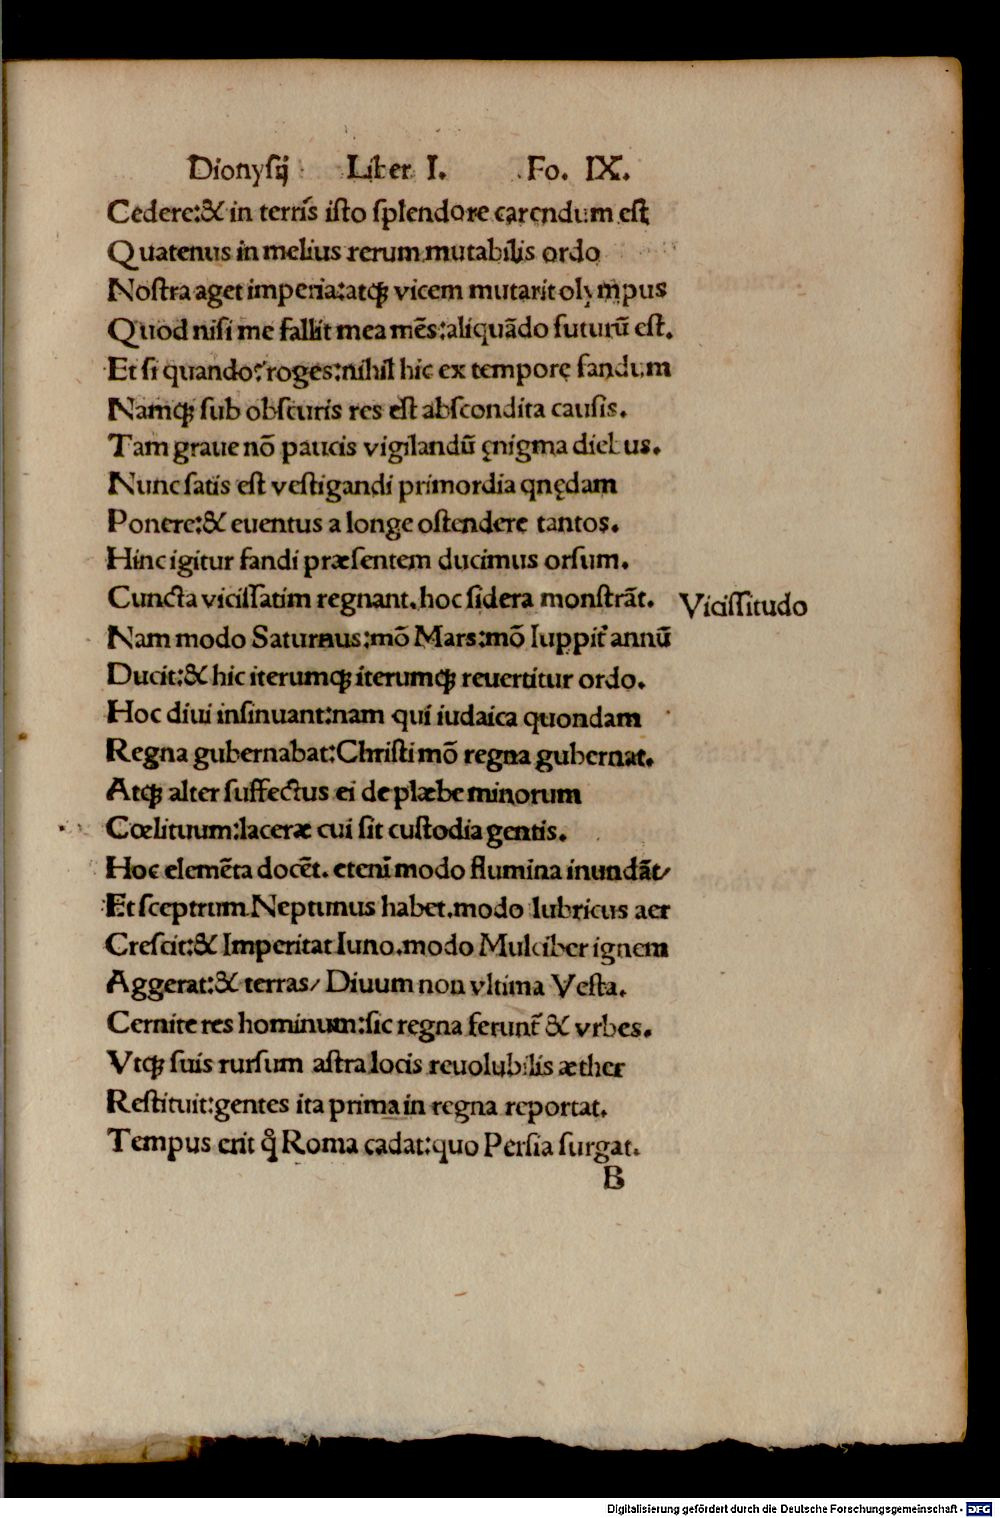 Dionysij Liber I. Fo. IX.
Cedere:& in terrĩs iſto ſplendore carendum eſt
Quatenus in melius rerum mutabilis ordo
Noſtra aget imperia:atqꝫ vicem mutarit olympus
Quod niſi me fallit mea mẽs:aliquãdo futurũ eſt.
Et ſi quando? roges:nihil hic ex tempore fandum
Namqꝫ ſub obſcuris res eſt abſcondita cauſis.
Tam graue nõ paucis vigilandũ ęnigma diebus.
Nunc ſatis eſt veſtigandi primordia qnędam
Ponere:& euentus a longe oſtendere tantos.
Hinc igitur fandi præſentem ducimus orſum.
Cuncta viciſſatim regnant.hoc ſidera monſtrãt.
Viciſſitudo
Nam modo Saturnus:mõ Mars:mõ Iuppit̃ annũ
Ducit:& hic iterumqꝫ iterumqꝫ reuertitur ordo.
Hoc diui inſinuant:nam qui iudaica quondam
Regna gubernabat:Chriſti mõ regna gubernat.
Atqꝫ alter ſuffectus ei de plæbe minorum
Cœlituum:laceræ cui ſit cuſtodia gentis.
Hoc elemẽta docẽt. etenĩ modo flumina inundãt/
Et ſceptrum Neptunus habet.modo lubricus aer
Creſcit:& Imperitat Iuno.modo Mulciber ignem
Aggerat:& terras/ Diuum non vltima Veſta.
Cernite res hominum:ſic regna ferunt̃ & vrbes.
Vtqꝫ ſuis rurſum aſtra locis reuolubilis æther
Reſtituit:gentes ita prima in regna reportat.
Tempus erit qͦ Roma cadat:quo Perſia ſurgat.
B
Digitalisierung gefördert durch die Deutsche Forschungsgemeinschaft - DFG